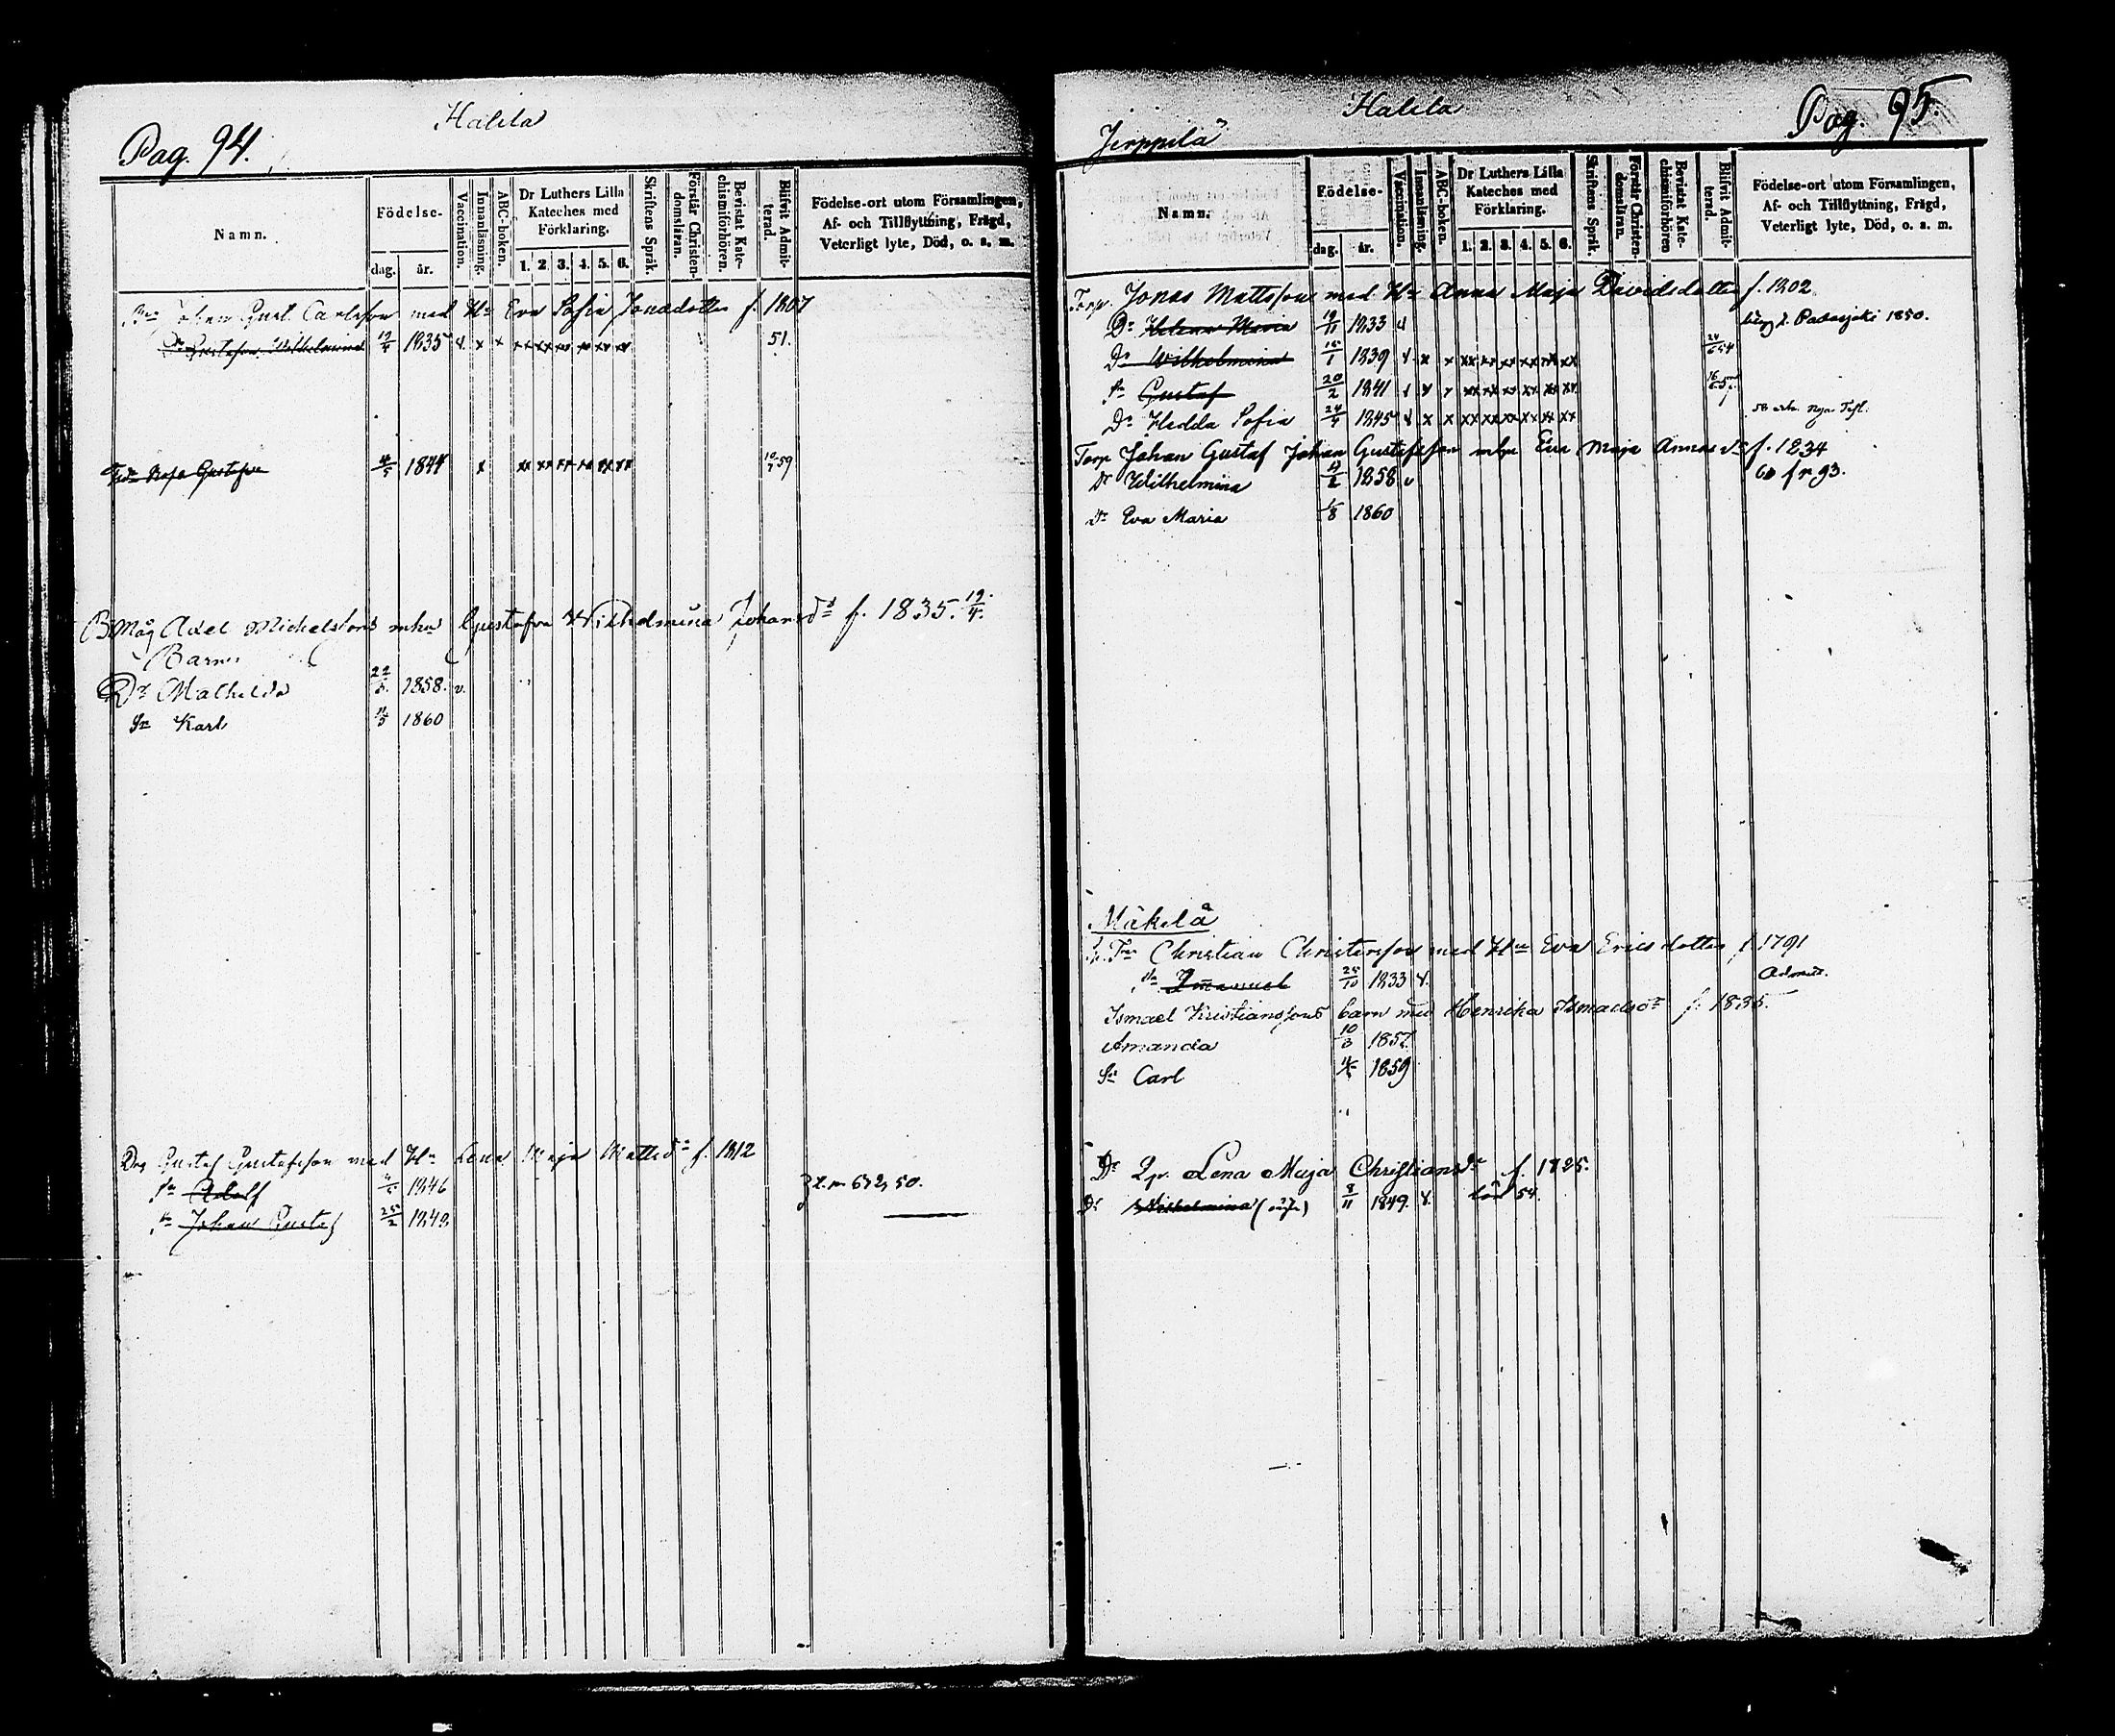 Halila
Pag. 94.
Namn.
Födelse-
dag.
år.
Vaccination.
Innanläsning.
ABC-boken.
Dr Luthers Lilla
Kateches med
Förklaring.
1. 2. 3. 4. 5. 6.
Skriftens Språk.
Förstår Christen-
domsläran.
Bevistat Kate-
chismiförhören.
Blifvit Admit-
terad.
Födelse-ort utom Församlingen,
Af- och Tillflyttning, Frägd,
Veterligt lyte, Död, o. s. m.
Johan Gust. Carlsson med Hu Eva Sofia Jonædotter f. 1807
Gustafva Wilhelmina 19/4 1835 v. x x xx xx xx xx xx xx 51.
Gustafva 4/5 1844 x xx xx xx xx xx xx 10/7 59
B Måg Axel Michelsons mhu Gustafva Wilhelmina Johansdr f. 1835. 19/4.
Barn
Dr Mathilda 22/5. 1858. v.
Sn Karl 1860
Drg Gustaf Gustafsson med Hu Lena Maja Mattsdr f. 1812
Sn Adolf 1846
Sn Johan Gustaf 25/2 1849
50.
Halila
Pag. 95.
Jerppilä
Namn.
Födelse-
dag.
år.
Vaccination.
Innanläsning.
ABC-boken.
Dr Luthers Lilla
Kateches med
Förklaring.
1. 2. 3. 4. 5. 6.
Skriftens Språk.
Förstår Christen-
domsläran.
Bevistat Kate-
chismiförhören
Blifvit Admit-
terad.
Födelse-ort utom Församlingen,
Af- och Tillflyttning, Frägd,
Veterligt lyte, Död, o. s. m.
Torp. Jonas Mattsson med Hu Anna Maja Davidsdotter f. 1802
Dr Helena Maria 19/11 1833 v Padasjoki 1850.
Dr Wilhelmina 15/1 1839 v x x xx xx xx xx xx xx 24/6 54
Sn Gustaf 20/2 1841 v x x xx xx xx xx xx xx
Dr Hedda Sofia 24/4 1845 v x x xx xx xx xx xx xx 58
Torp Johan Gustaf Johan Gustafsson mhu Eva Maja Annas dr f. 1834
Dr Wilhelmina 1858 v 60 fr 93.
Dr Eva Maria 1/8 1860
Mäkelä
Christian Christersson med Hu Eva Ericsdotter f. 1791
Sn Immanuel 25/10 1833 v. Admit.
Ismael Kristianssons barn med Henrika Ismaelsdr f. 1835.
Amanda 10/3 1857.
Sn Carl 1859
Dr Lena Maja Christiansdr f. 1825.
Dr Wilhelmina 8/11 1849. v. död 54.